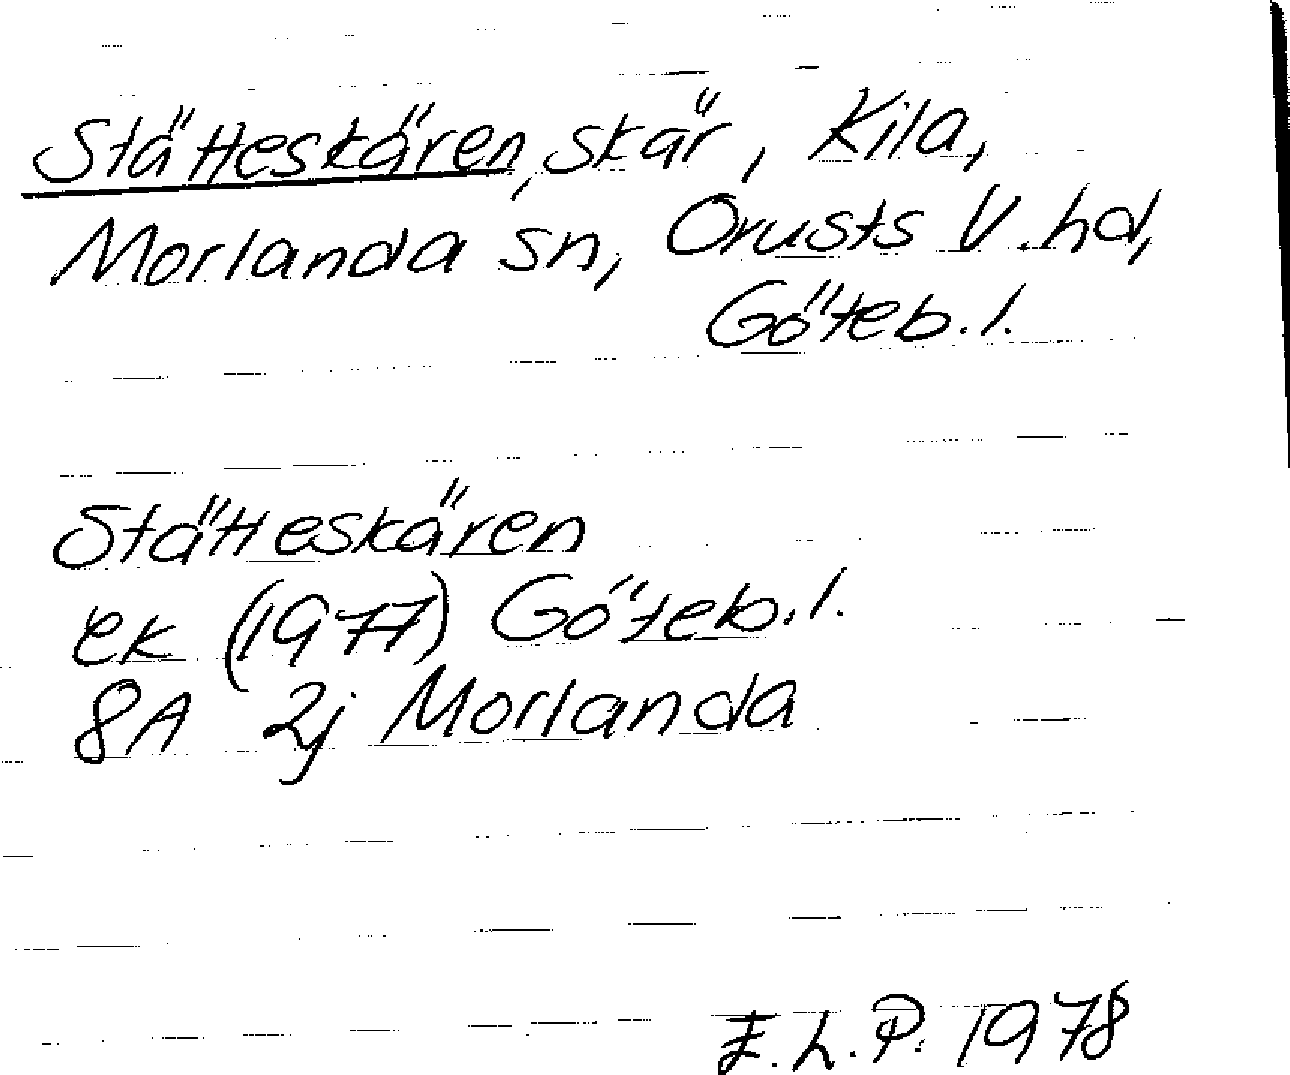 Stätteskären, skär, Kila,
Morlanda sn, Orusts V. hd,
Göteb. l.
Stätteskären
ek (1977) Göteb. l.
8A 2j Morlanda
E. L. P. 1978